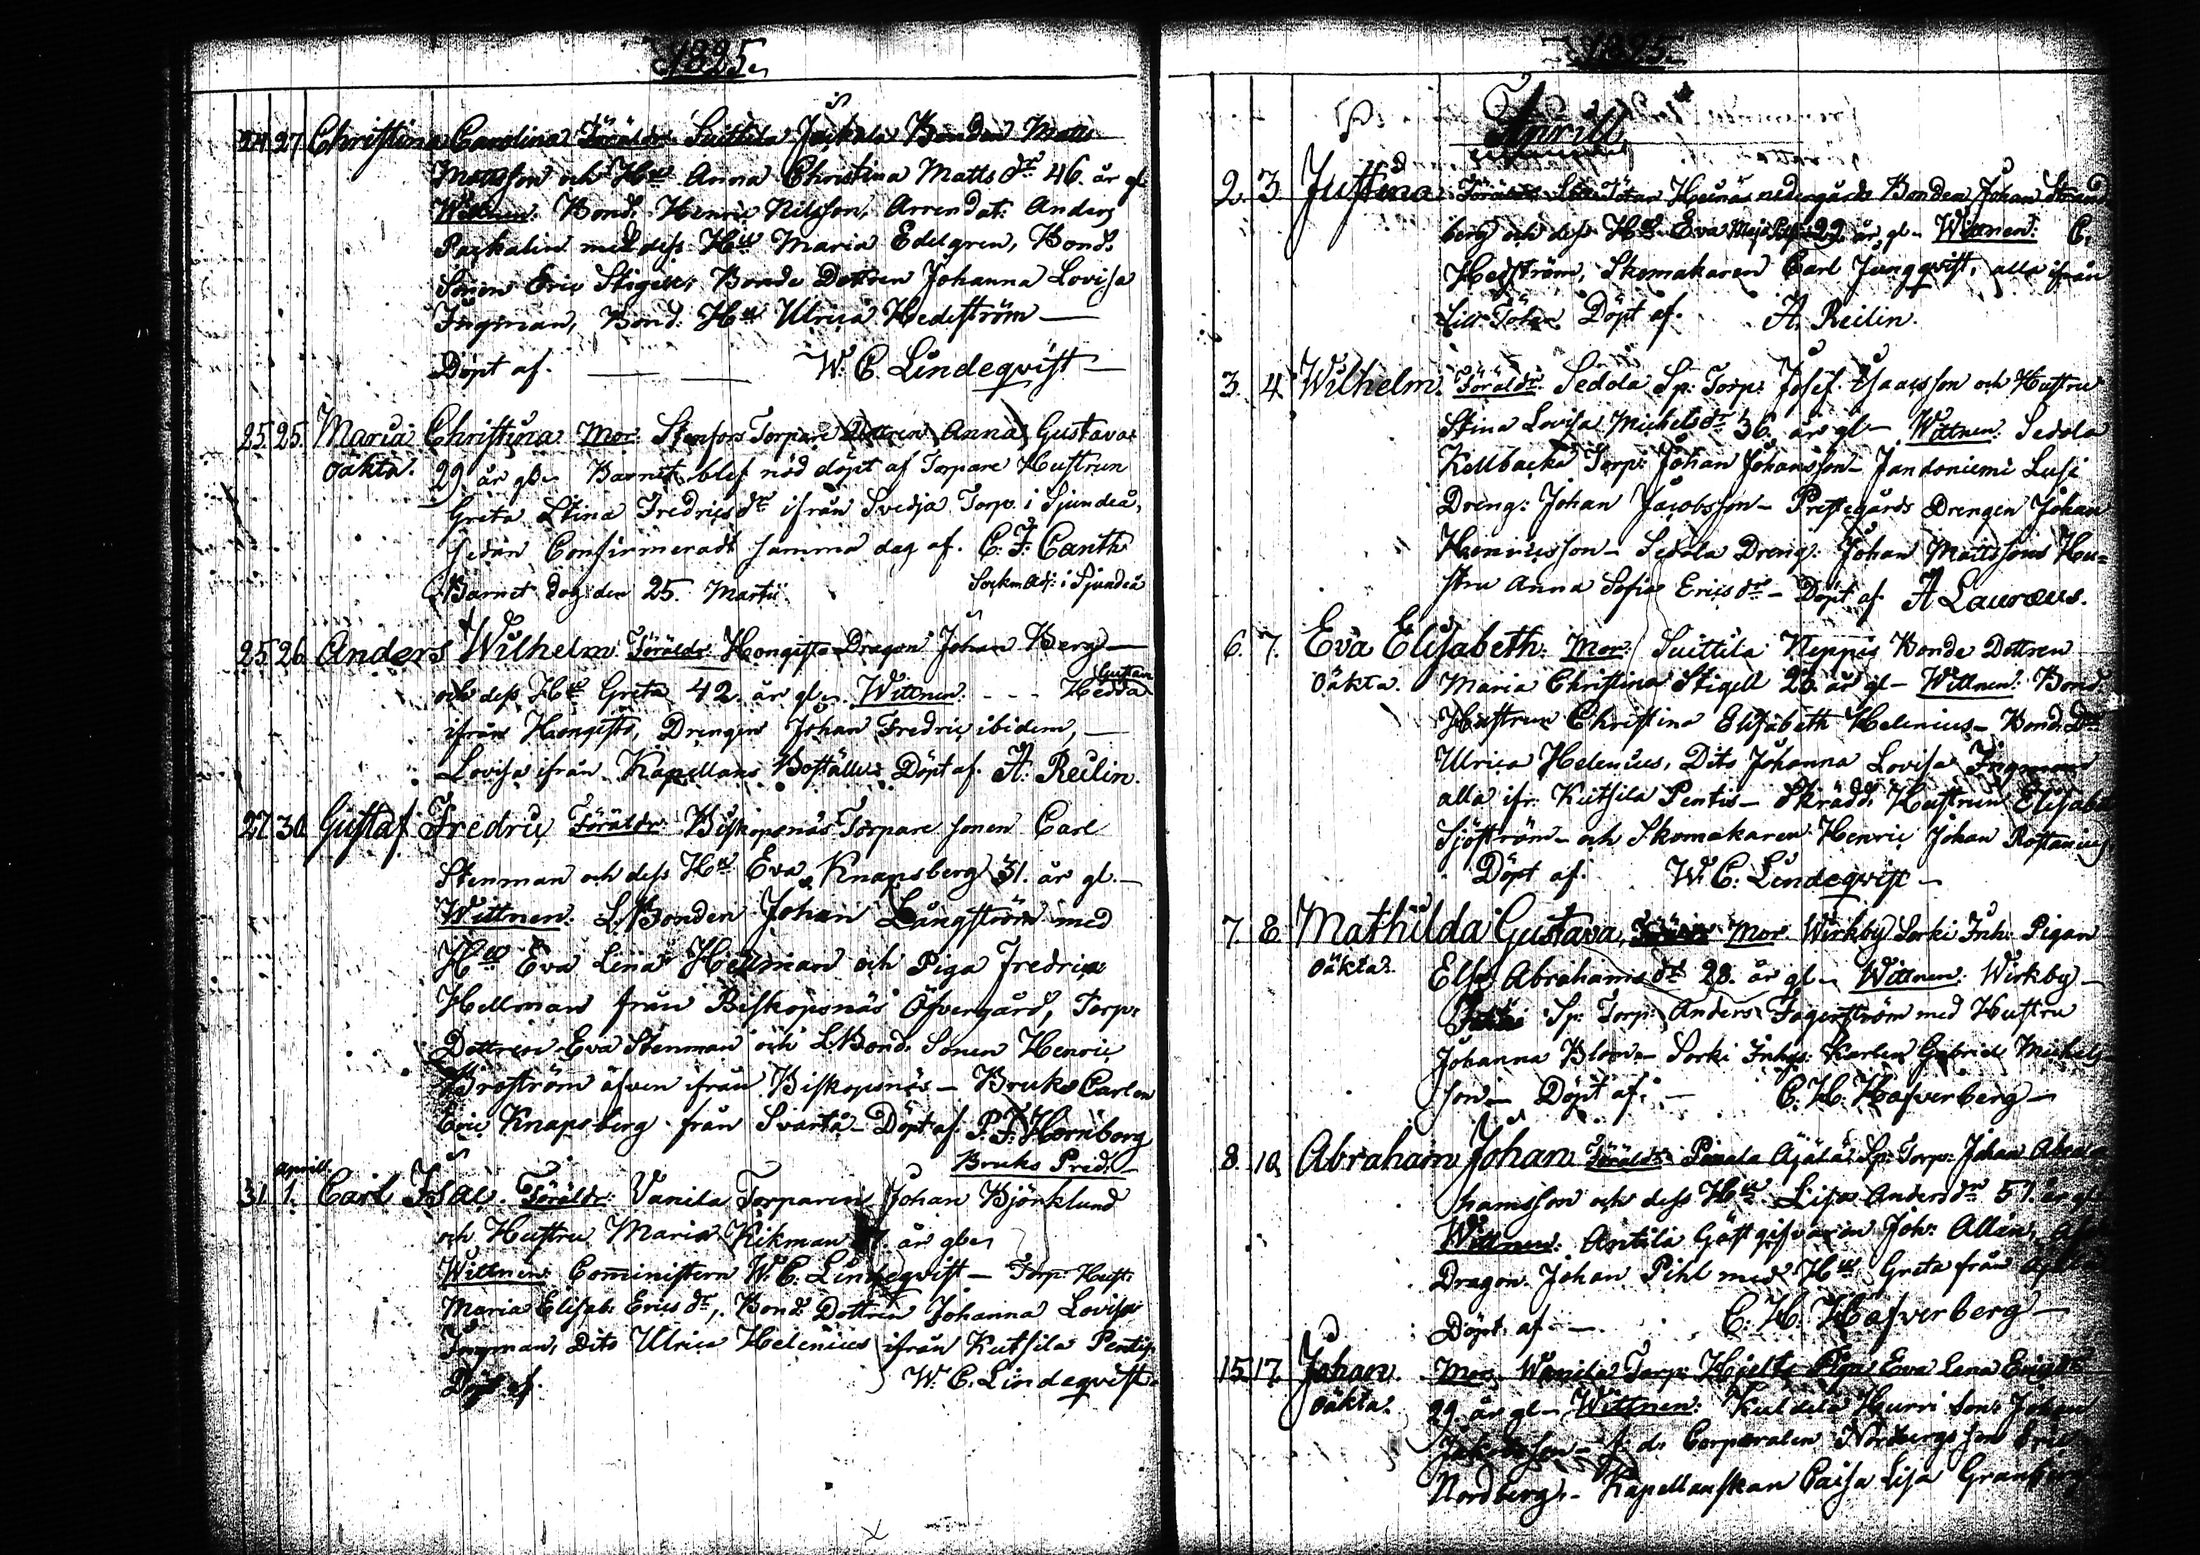 1825.
24. 27. Christina Carolina Föräldr. Suittila Jackola Bonden Matts
Mattsson och Hu Anna Christina Matts dr 46. år gl
Wittnen: Bond. Henric Nilsson, Arrendat: Anders
med dess Hu Maria Edelgren, Bond.
Sonen Eric Stigell, Bonde Dottren Johanna Lovisa
Ingman, Bond: Hu Ulrica Hedeström —
Döpt af. — — W. C. Lindeqvist —
25. 25. Maria Christina Mor: Stenfors Torpare Dottren Anna Gustava
oäkta. 29 år gl. Barnet blef nöd döpt af Torpare Hustrun
Greta Stina Fredrics dr ifrån Svedja Torp. i Sjundeå,
sedan Confirmeradt samma dag af. C. F. Canth
Barnet dog den 25. Martii. Sockm. Adj: i Sjundeå
25. 26. Anders Wilhelm Föräldr. Hongisto Dragon Johan Berg —
Gustava
och dess Hu Greta 42. år gl. Wittnen. - - - Hedda
ifrån Hongisto, Drengen Johan Fredric ibidem, —
Lovisa ifrån Kapellans Bostället Döpt af. A. Reilin.
27. 30. Gustaf Fredric Föräldr. Biskopsnäs Torpare sonen Carl
Stenman och dess Hu Eva Knapsberg 31. år gl. —
Wittnen: L. Bonden Johan Långström med
Hu Eva Lena Hellman och Piga Fredrica
Hellman från Biskopsnäs Öfvergård, Torp.
Dottren Eva Stenman och L. Bond. Sonen Henric
Broström äfven ifrån Biskopsnäs — Bruks Carlen
Eric Knapsberg från Svartå — Döpt af. P. F. Hornborg
Bruks Pred. —
Aprill.
31. 1. Carl Isac. Föräldr: Vanila Torparen Johan Björklund
och Hustru Maria Kikman år gl.
Wittnen: Cominístern W. C. Lindeqvist — Torp. Hust:
Maria Elisab. Erics dr, Bond. Dottren Johanna Lovisa
Ingman, Dito Ulrica Helenius ifrån Kutsila Pentis.
Döpt af. W. C. Lindeqvist.
1825.
Aprill
2. 3. Justina Föräldr. Töter nedergårds Bonden Johan Strand
berg och dess Hu Eva 22. år gl — Wittnen: C.
Hedström, Skomakaren Carl Jungqvist, alla ifrån
Döpt af. A. Reilin.
3. 4. Wilhelm. Föräldr. Sedola Sp: Torp: Josef Isaacsson och Hustru
Stina Lovisa Michels dr 36. år gl — Wittnen: Sedola
Kellbacka Torp: Johan Johansson — Jandoniemi Lusi
Dreng: Johan Jacobsson — Prestegårds Drengen Johan
Henricsson — Sedola Dreng: Johan Mattssons Hu=
stru Anna Sofia Erics dr — Döpt af A Lauræus.
6. 7. Eva Elisabeth. Mor: Suittila Neppis Bonde Dottren
oäkta. Maria Christina Stigell 26. år gl — Wittnen: Bond.
Hustrun Christina Elisabeth Helenius — Bond. Dr
Ulrica Helenius, Dito Johanna Lovisa Ingman
alla ifr. Kutsila Pentis — Skrädd. Hustrun Elisabe
Sjöström — och Skomakaren Henric Johan Rostanius
Döpt af. W. C. Lindeqvist —
7. 8. Mathilda Gustava, Mor. Wirkby Sorki Inh: Pigan
oäkta. Elsa Abrahams dr 28. år gl — Wittnen: Wirkby —
Sp: Torp: Anders Fagerström med Hustru
Johanna Blom — Sorki Inhys: Karlen Gabriel Michels
son — Döpt af. — C. H. Hafverberg —
8. 10. Abraham Johan Föräldr. Äjälä Sp: Torp: Johan Abra
hamsson och dess Hu Lisa Anders dr 51. år gl
Wittnen: Antila Gästgifvaren Joh: Allén,
Dragon Johan Pihl med Hu Greta från
Döpt af. — C. H. Hafverberg —
15. 17. Johan. Mor. Wanila Torp: Hjelte Piga Eva Lena Erics dr
oäkta. 29 år gl — Wittnen: Kuldela Hurri Son. Johan
— f. d. Corporalen Nordbergs son Eric
Nordberg. — Kapellanskan Caisa Lisa